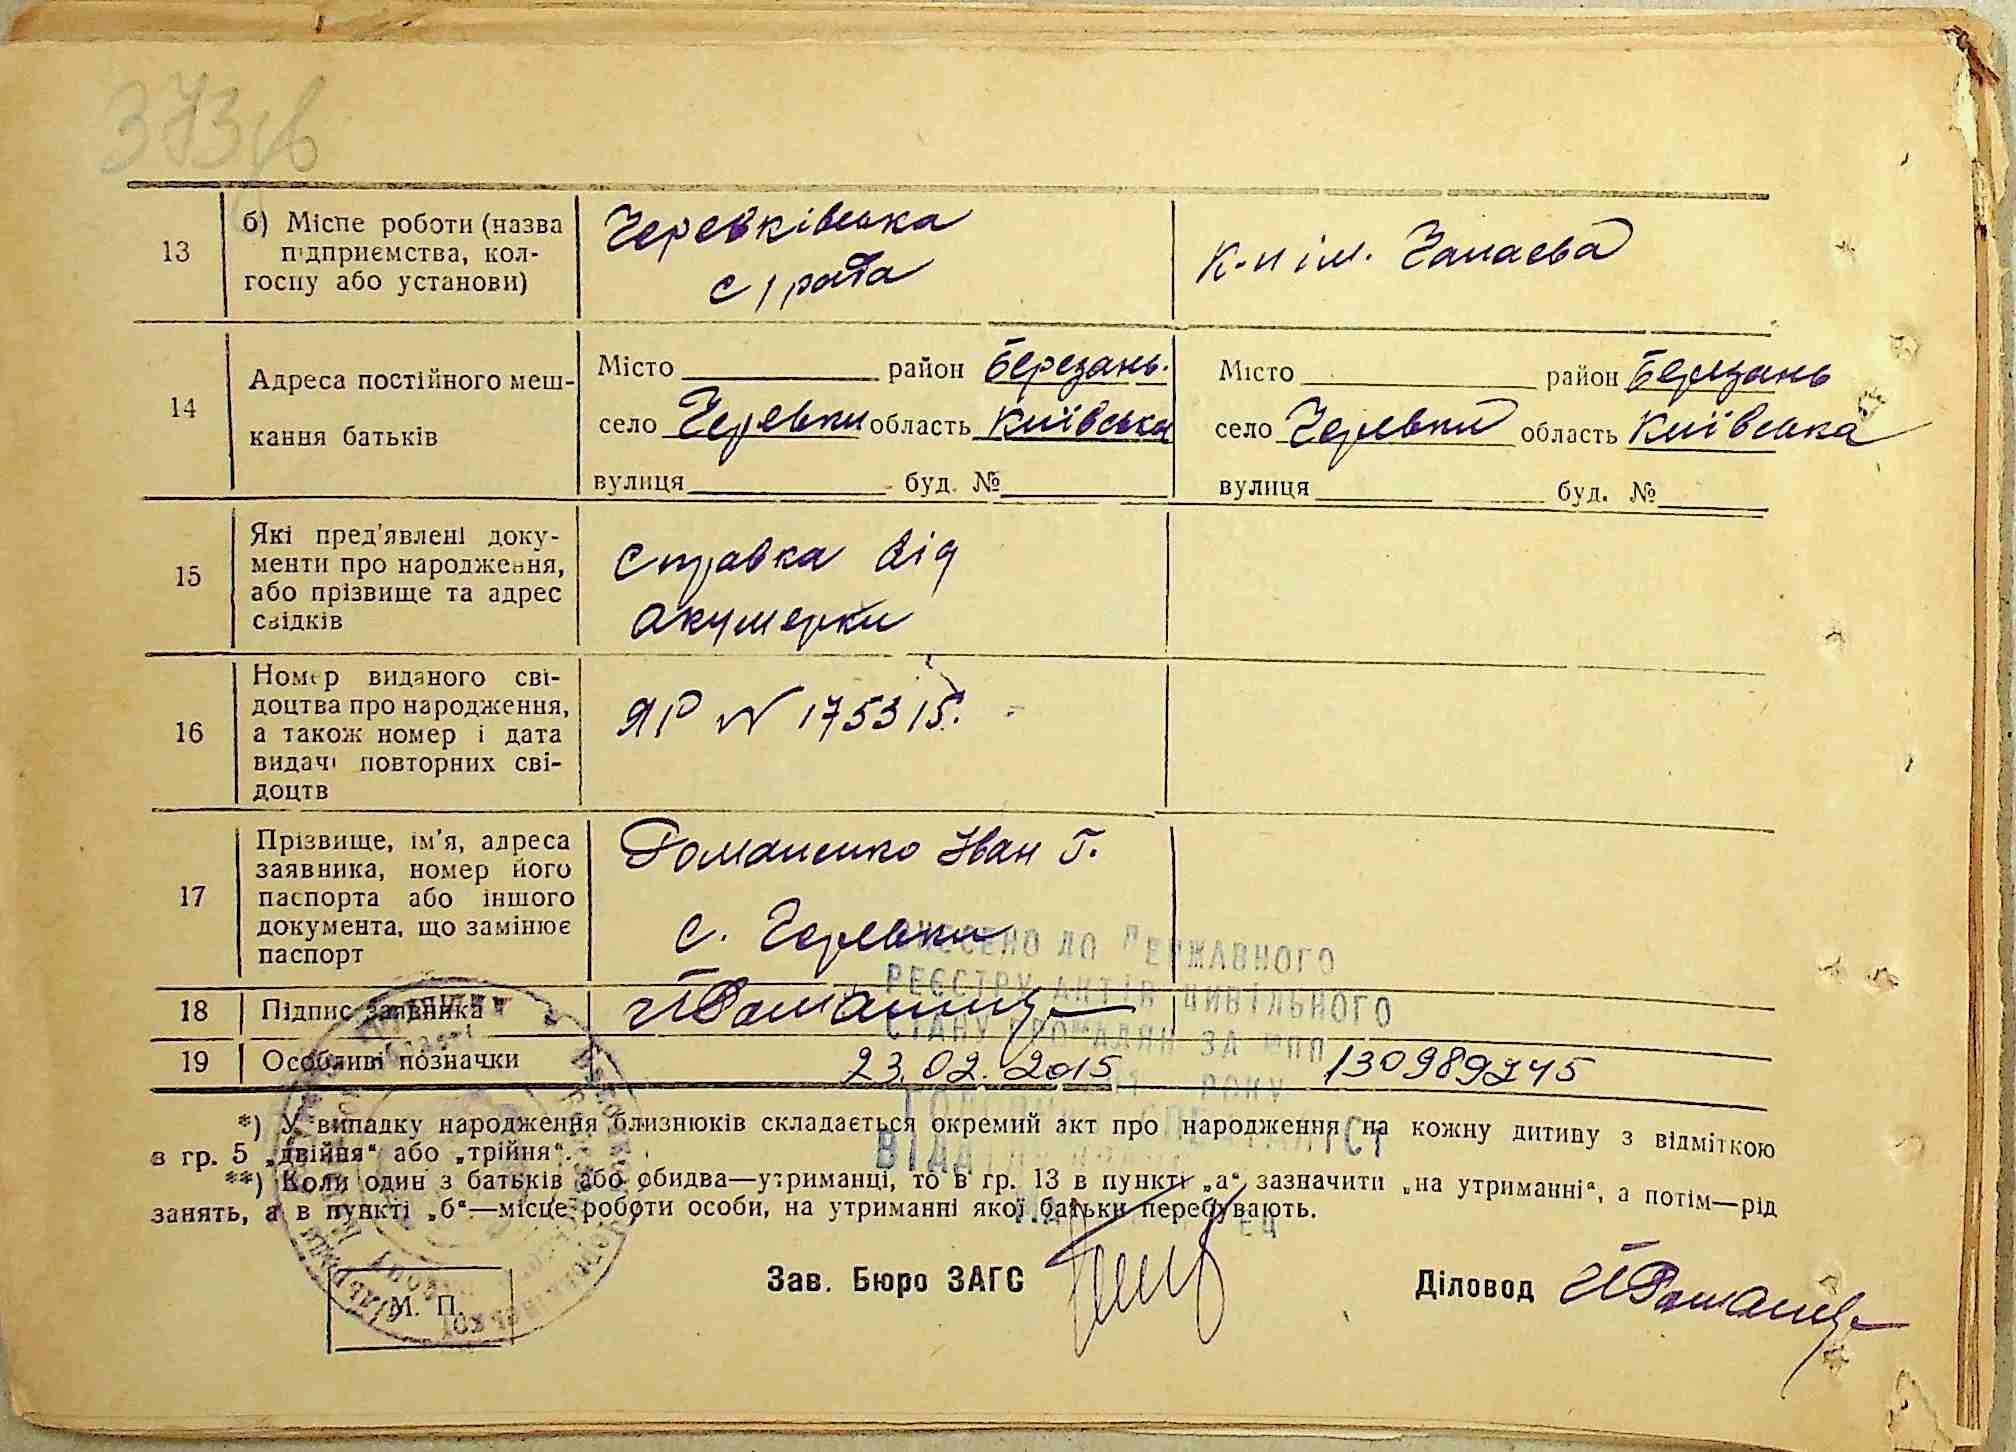 373зв
13
б) Місце роботи (назва
підприємства, кол-
госпу або установи)
Черевківська
с/рада
к-п ім. Чапаєва
14
Адреса постійного меш-
кання батьків
Місто район Березань.
село Черевки область Київська
вулиця буд. №
Місто район Березань
село Черевки область Київська
вулиця буд. №
15
Які пред'явлені доку-
менти про народження,
або прізвище та адрес
свідків
Справка від
акушерки
16
Номер виданого сві-
доцтва про народження,
а також номер і дата
видачі повторних сві-
доцтв
ЯР N 175315.
17
Прізвище, ім'я, адреса
заявника, номер його
паспорта або іншого
документа, що замінює
паспорт
Романенко Іван Г.
с. Черевки
ВНЕСЕНО ДО ДЕРЖАВНОГО
РЕЄСТРУ АКТІВ ЦИВІЛЬНОГО
СТАНУ ГРОМАДЯН ЗА №ПП
РОКУ
18
Підпис заявника
19
Особливі позначки
23.02.2015
130989245
*) У випадку народження близнюків складається окремий акт про народження на кожну дитину з відміткою
в гр. 5 „двійня“ або „трійня“.
**) Коли один з батьків або обидва—утриманці, то в гр. 13 в пункті „а“ зазначити „на утриманні“, а потім—рід
занять, а в пункті „б“—місце роботи особи, на утриманні якої батьки перебувають.
М. П.
Зав. Бюро ЗАГС
Діловод